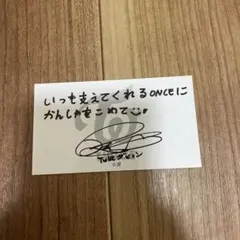 いつも支えてくれるONCEに
かんしゃをこめて
TWICE ダヒョン